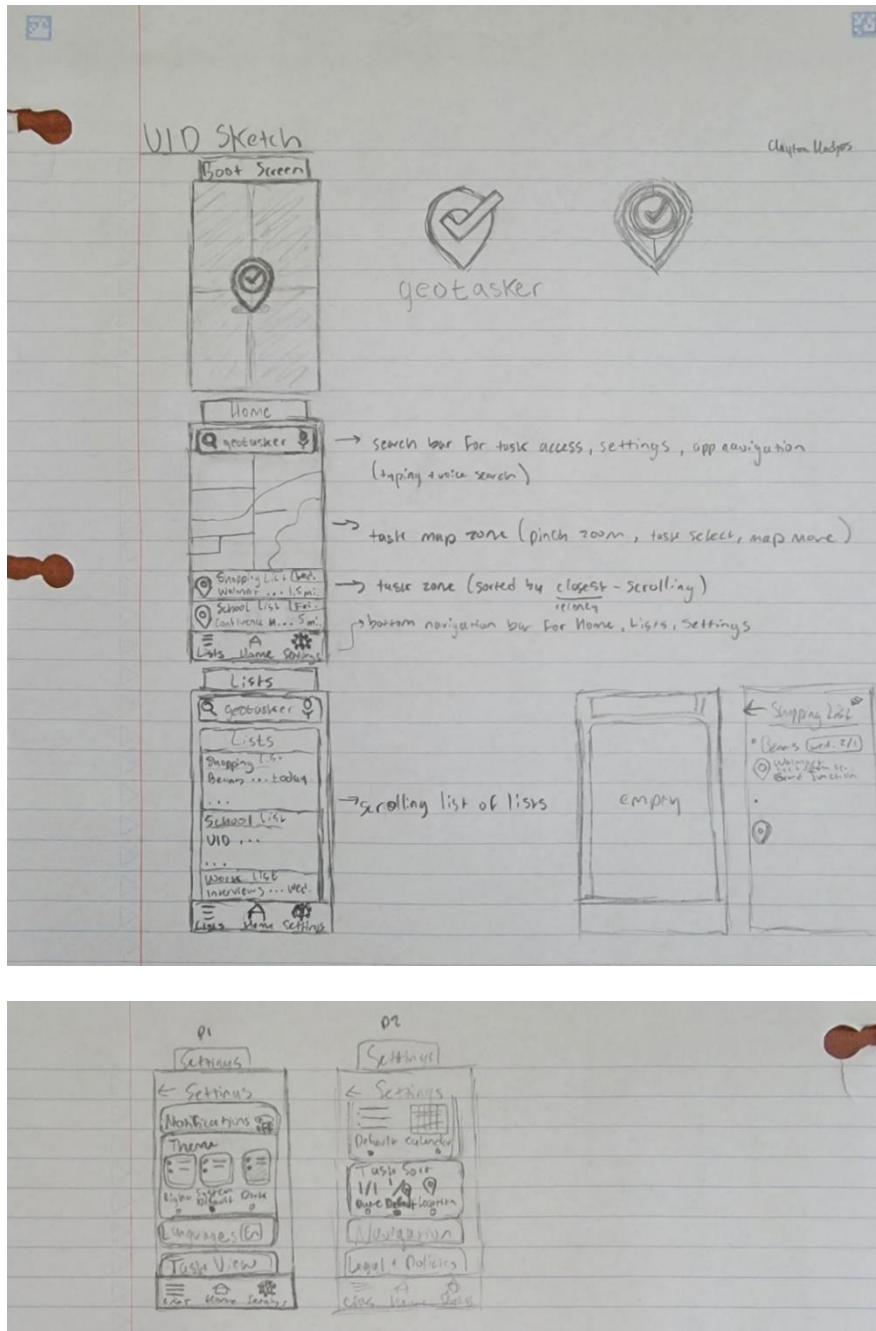 UID Sketch
Clayton
Boot Screen
geotasker
Home
geotasker
→ search bar for task access, settings, app navigation
(typing + voice search)
→ task map zone (pinch zoom, task select, map move)
Shopping List Wed.
Walmart ... 1.5 mi.
→ task zone (sorted by closest - scrolling)
recency
School List Fri.
... 5 mi.
→ bottom navigation bar for Home, Lists, Settings
Lists Home Settings
Lists
geotasker
Lists
Shopping List
Beans ... today
...
→ scrolling list of lists
School List
UID ...
...
Work List
interviews ... Wed.
Lists Home Settings
empty
← Shopping List
• Beans Wed. 2/1
Walmart
Grand Junction
P1
Settings
← Settings
Notifications
Theme
Light System Default Dark
Languages En
Task View
Lists Home Settings
P2
Settings
← Settings
Default Calendar
Task Sort
1/1
Date Default Location
Navigation
Legal + Policies
Lists Home Settings